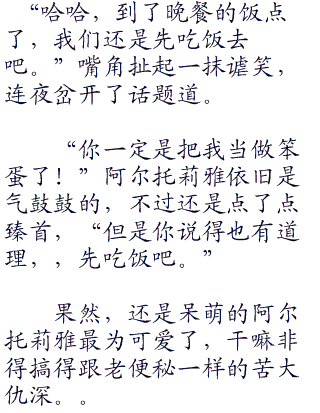 “哈哈，到了晚餐的饭点
了，我们还是先吃饭去
吧。”嘴角扯起一抹谑笑，
连夜岔开了话题道。
“你一定是把我当做笨
蛋了！”阿尔托莉雅依旧是
气鼓鼓的，不过还是点了点
臻首，“但是你说得也有道
理，，先吃饭吧。”
果然，还是呆萌的阿尔
托莉雅最为可爱了，干嘛非
得搞得跟老便秘一样的苦大
仇深。。